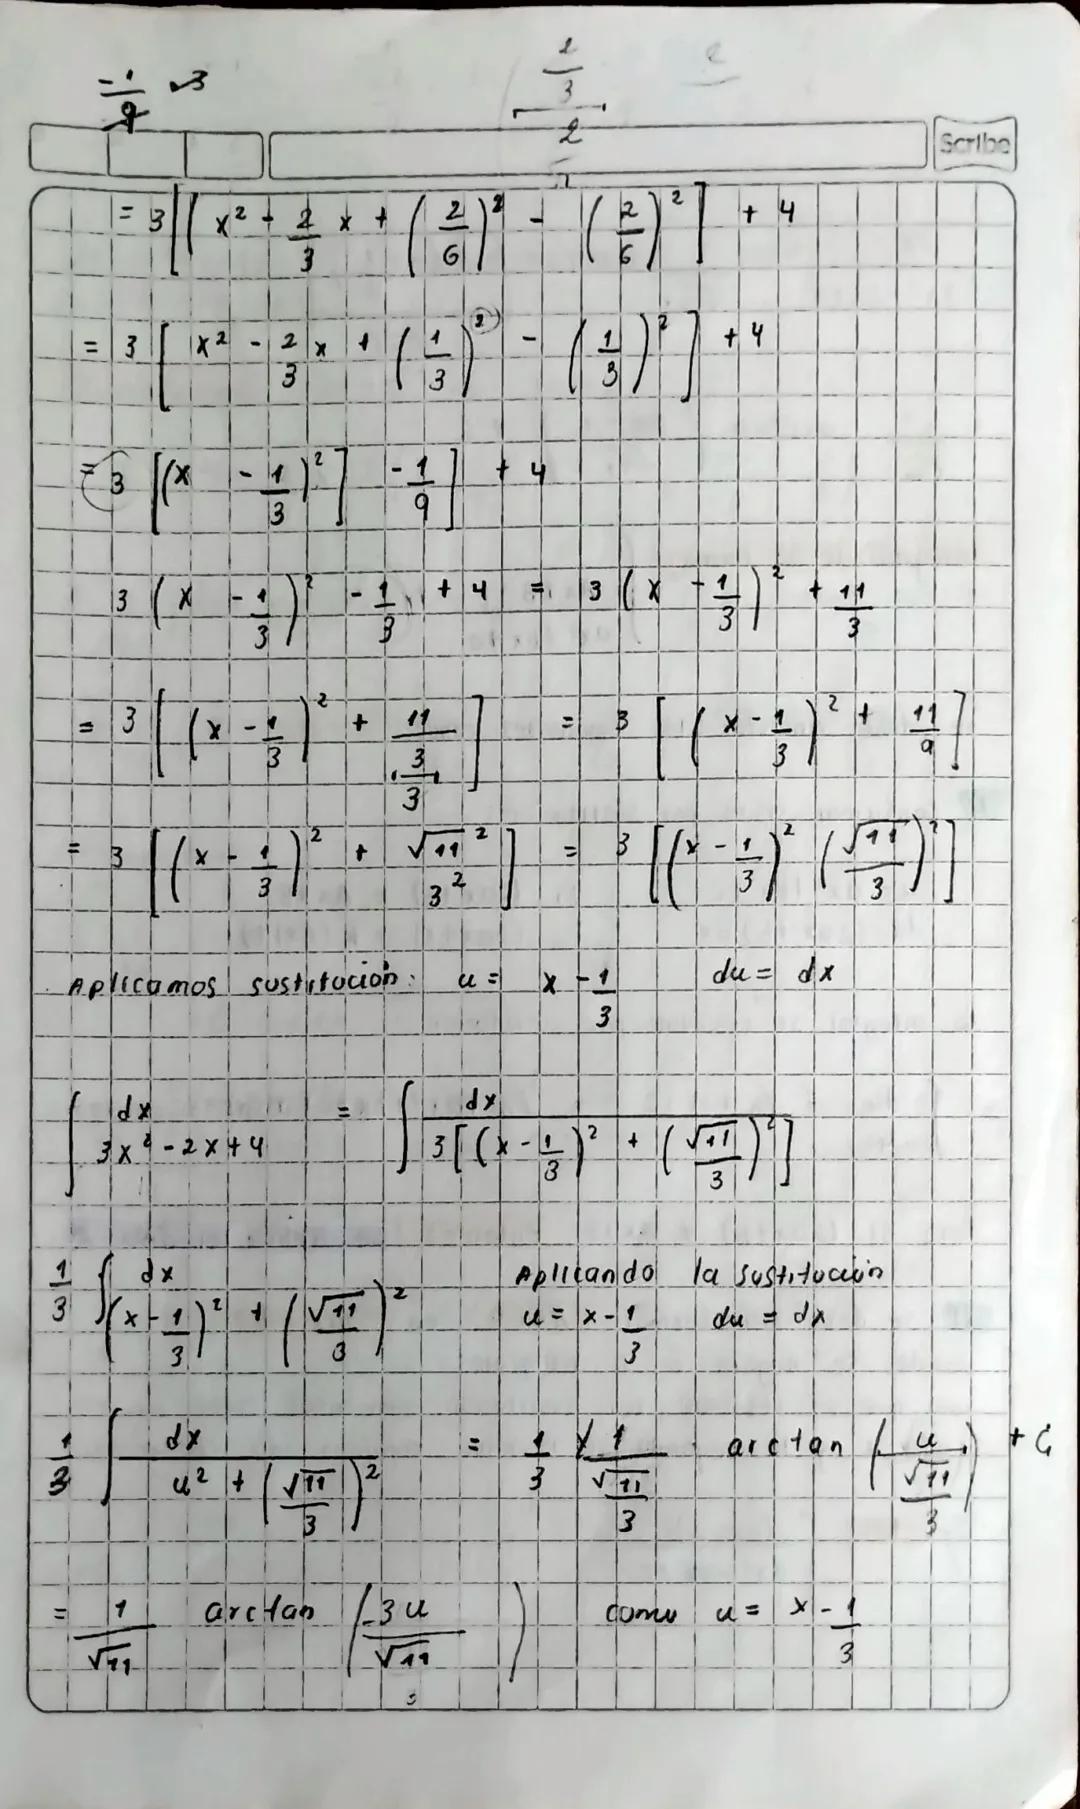 -1/9 · 3
2/3
2
Scribe
= 3 [ ( x² - 2/3 x + (2/6)² - (2/6)² ] + 4
= 3 [ x² - 2/3 x + (1/3)² - (1/3)² ] + 4
= 3 [ (x - 1/3)² ] - 1/9 ] + 4
3 (x - 1/3)² - 1/3 + 4 = 3 (x - 1/3)² + 11/3
= 3 [ (x - 1/3)² + 11/3/3 ] = 3 [ (x - 1/3)² + 11/9 ]
= 3 [ (x - 1/3)² + √11²/3² ] = 3 [ (x - 1/3)² (√11/3)² ]
Aplicamos sustitución: u = x - 1/3 du = dx
∫ dx/3x² - 2x + 4 = ∫ dx/3[(x - 1/3)² + (√11/3)²]
1/3 ∫ dx/(x - 1/3)² + (√11/3)² Aplicando la sustitución
u = x - 1/3 du = dx
1/3 ∫ dx/u² + (√11/3)² = 1/3 · 1/√11/3 arctan (u/√11/3) + C
= 1/√11 arctan (3u/√11) como u = x - 1/3